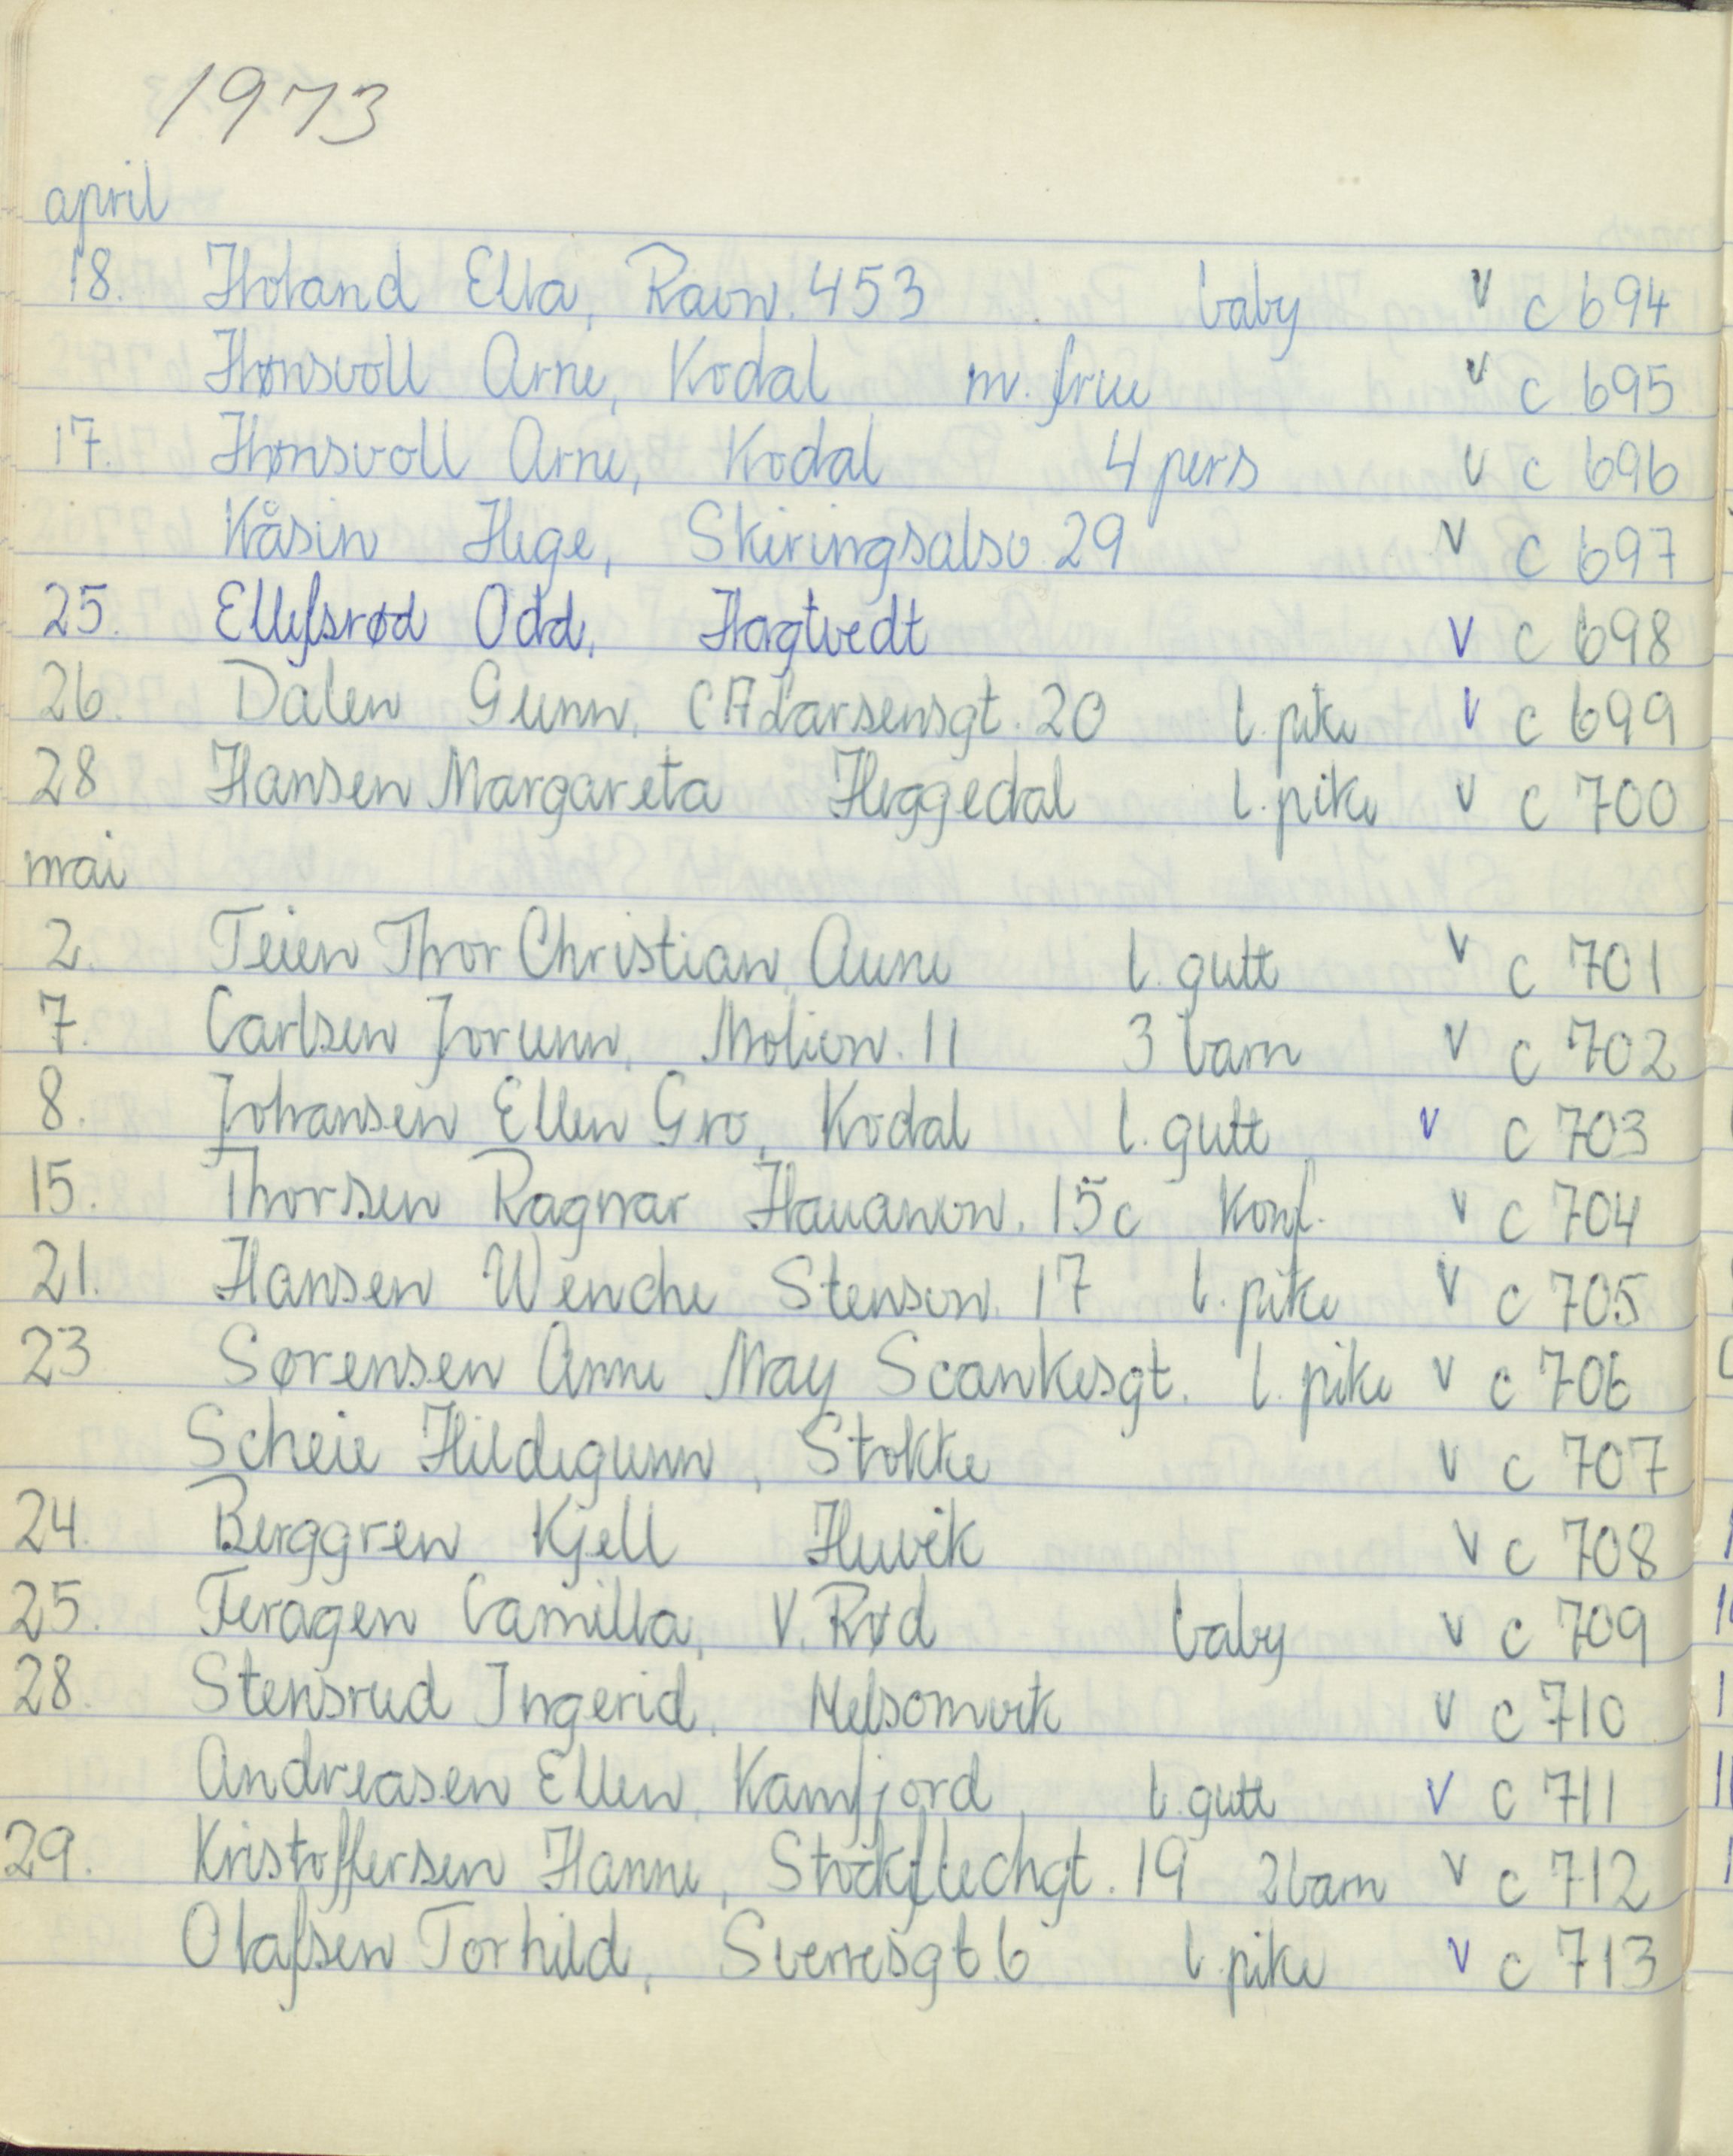 1973
april
18. Holand Ella, Ravn. 453 baby v c 694
Hønsvoll Arne, Kodal m. frue v c 695
17. Hønsvoll Arne, Kodal 4 pers v c 696
Kåsin Hege, Skiringsalsv. 29 v c 697
25. Ellefsrød Odd, Hogtvedt v c 698
26. Dalen Gunn, CA Larsensgt. 20 l. pike v c 699
28 Hansen Margareta Heggedal l. pike v c 700
mai
2. Teien Thor Christian, Aune l. gutt v c 701
7. Carlsen Jorunn, Moliv. 11 3 barn v c 702
8. Johansen Ellen Gro, Kodal l. gutt v c 703
15. Thorsen Ragnar Hauanv. 15c Konf. v c 704
21. Hansen Wenche Stensv. 17 l. pike v c 705
23 Sørensen Anne May Scankesgt. l. pike v c 706
Scheie Hildegunn, Stokke v c 707
24. Berggren Kjell Huvik v c 708
25. Feragen Camilla, V. Rød baby v c 709
28. Stensrud Ingerid, Melsomvik v c 710
Andreasen Ellen, Kamfjord, l. gutt v c 711
29. Kristoffersen Hanne, Stockflechgt. 19 2 barn v c 712
Olafsen Torhild, Sverresgt 6 l. pike v c 713